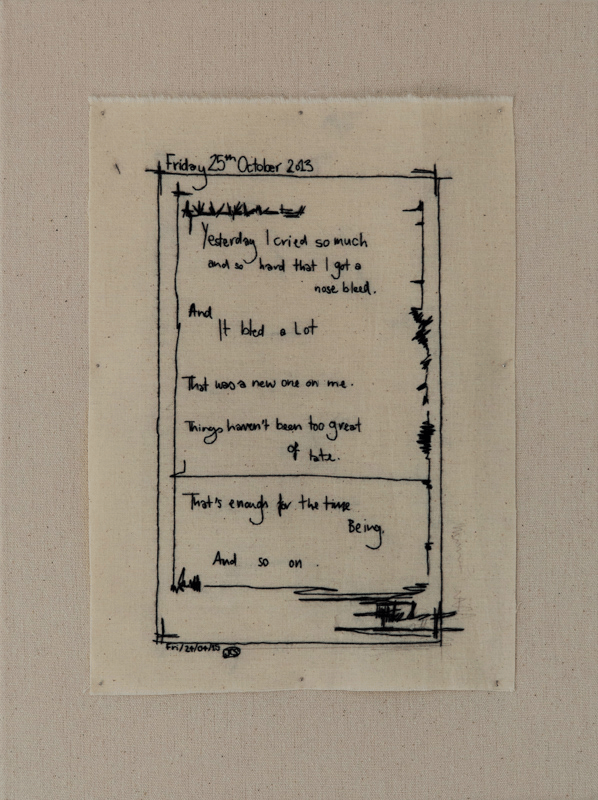 Friday 25th October 2013
Yesterday I cried so much
and so hard that I got a
nose bleed.
And
It bled a Lot
That was a new one on me.
Things haven't been too great
of late.
That's enough for the time
Being.
And so on.